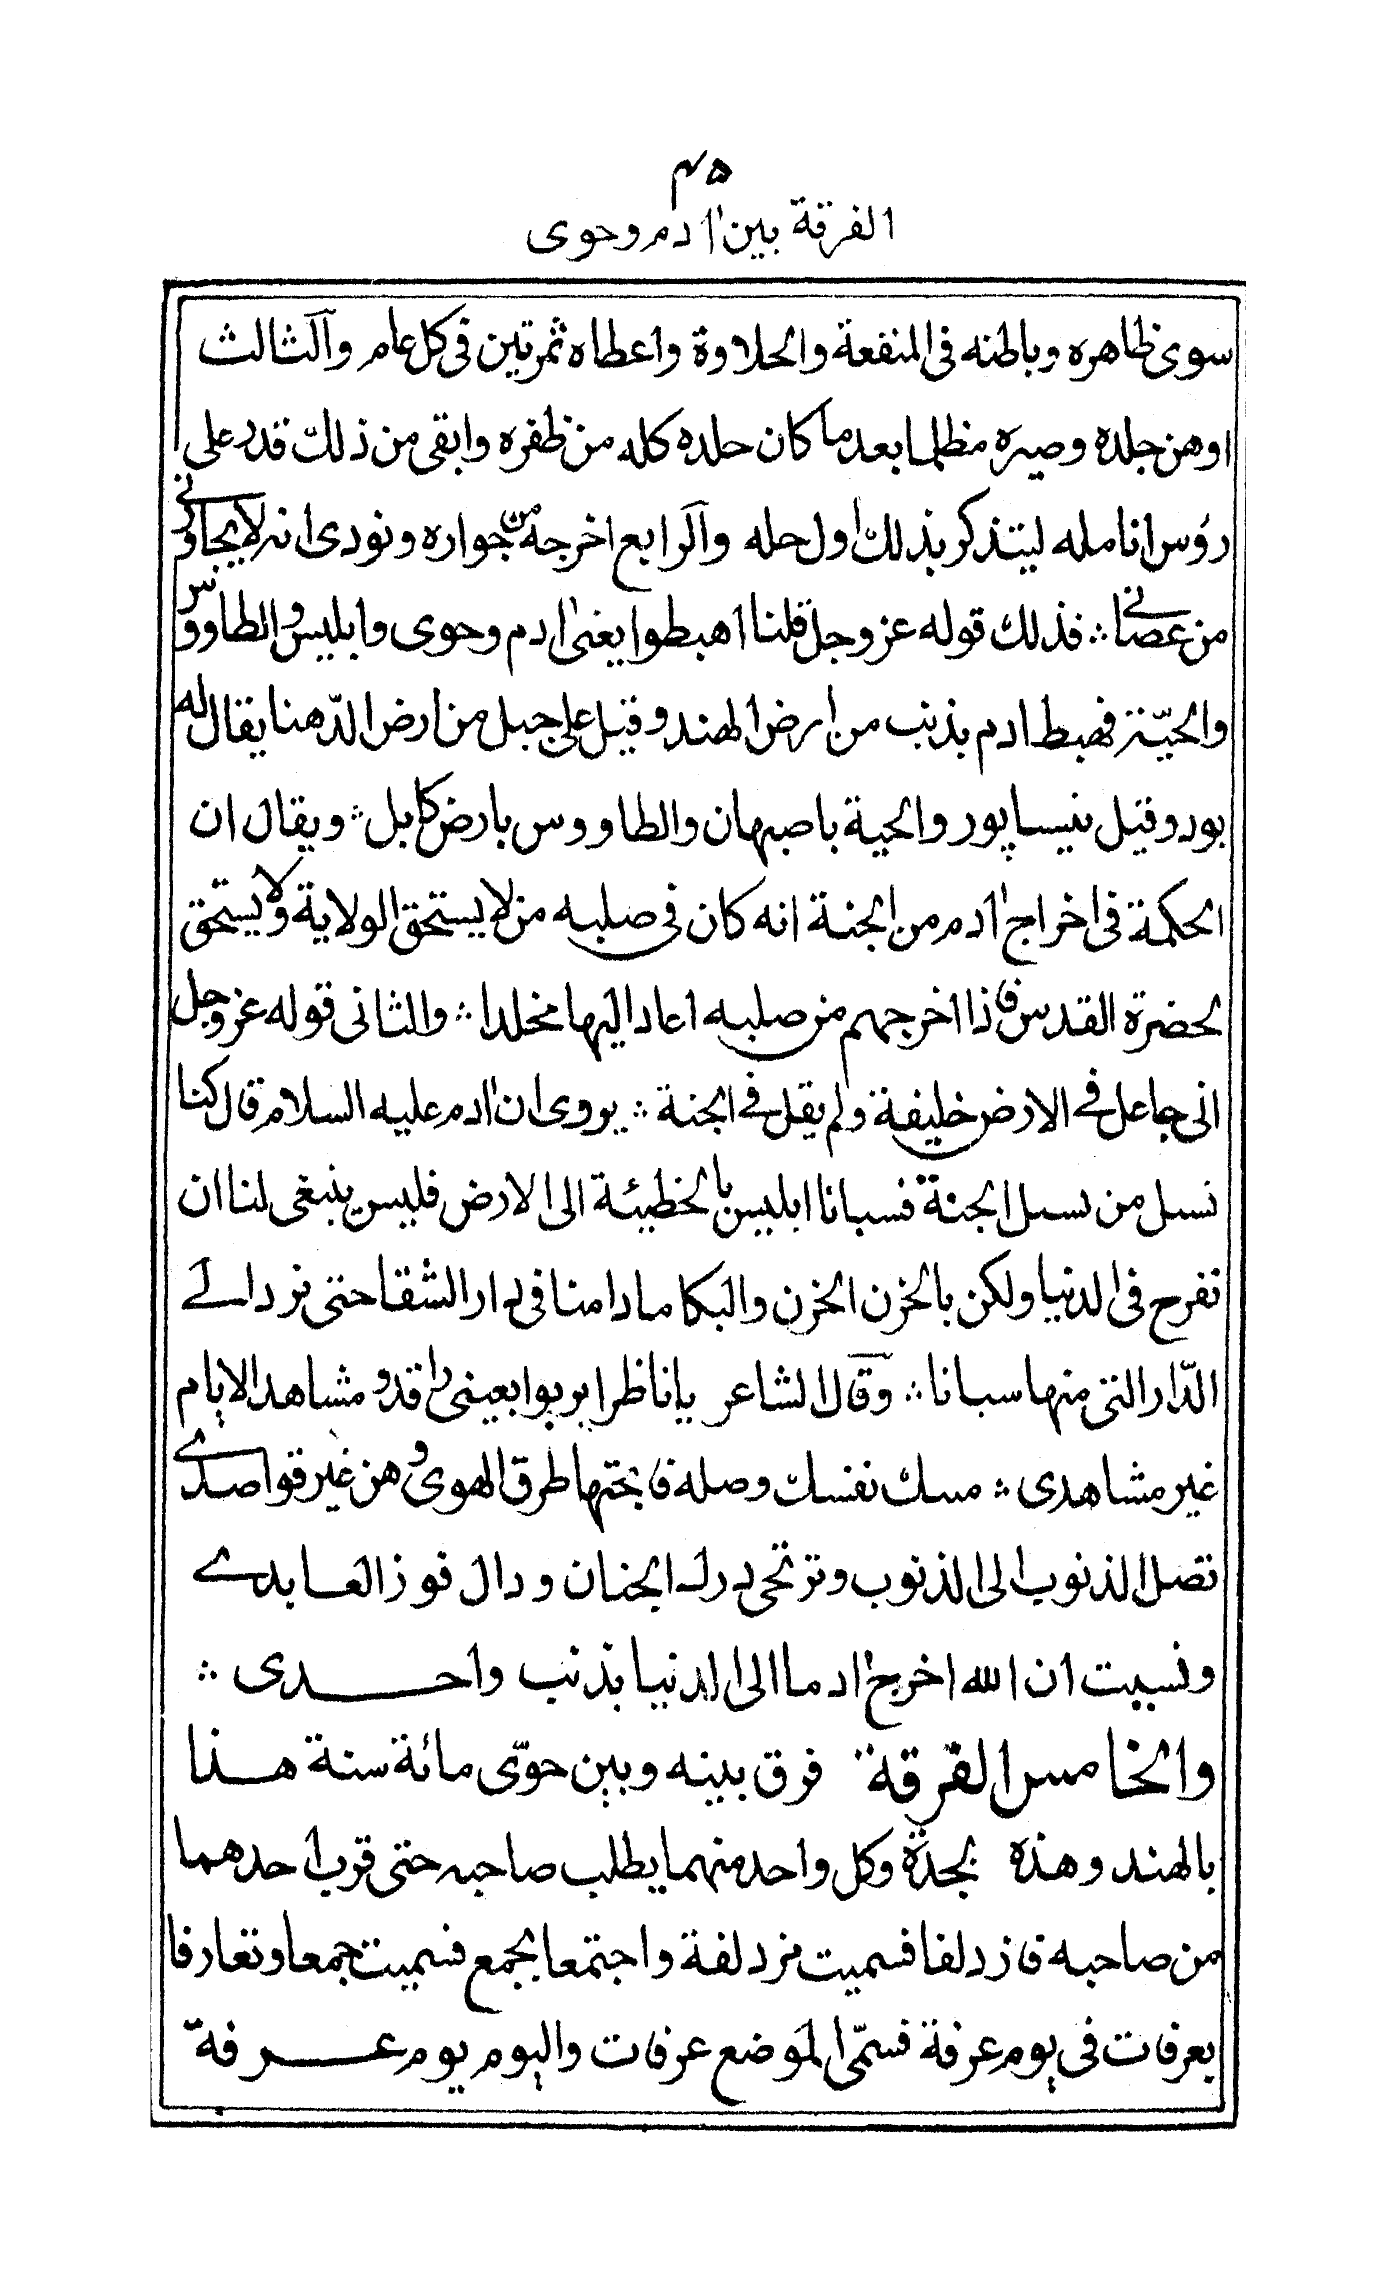 ٤٥
الفرقة بين اٰدم وحوى
سوى ظاهره وباطنه فى المنفعة والحلاوة واعطاه ثمرتين فى كل عام والثالث
اوهن جلده وصيره مظلما بعد ما كان جلده كله من ظفره وابقى من ذلك قدر على
رؤس انامله ليتذكر بذلك اول حله والرابع اخرجه من جواره ونودى انه لا يجاورنى
من عصانى ؞ فذلك قوله عز وجل قلنا اهبطوا يعنى اٰدم وحوى وابليس والطاووس
والحيّة فهبط ادم بذنب من ارض الهند وقيل على جبل من ارض الدّهنا يقال له
بود وقيل بنيساپور والحية باصبهان والطاووس بارض كابل ؞ ويقال ان
الحكمة فى اخراج اٰدم من الجنة انه كان فى صلبه من لا يستحق الولاية ولا يستحق
لحضرة القدس فاذا اخرجهم من صلبه اعاد اليها مخلدا ؞ والثانى قوله عز وجل
انى جاعل فى الارض خليفة ولم يقل فى الجنة ؞ يروى ان اٰدم عليه السلام قال كنا
نسل من نسل الجنة فسبانا ابليس بالخطيئة الى الارض فليس ينبغى لنا ان
نفرح فى الدنيا ولكن بالحزن الحزن والبكا مادامنا فى دار الشقا حتى نرد الى
الدّار التى منها سبانا ؞ وقال الشاعر يا ناظرا يربوا بعينى راقد و مشاهد الايام
غير مشاهدى ؞ مسك نفسك وصله فابحتها طرق الهوى و هن غير قواصدى
تصل الذنوب الى الذنوب وترتحى درك الجنان ودال فوز العابدى
ونسيت ان الله اخرج اٰدما الى الدنيا بذنب واحدى ؞
والخامس الفرقة فرق بينه وبين حوّى مائة سنة هذا
بالهند وهذه بجدة وكل واحد منهما يطلب صاحبه حتى قرب احدهما
من صاحبه فازدلفا فسميت مزدلفة واجتمعا بجمع فسميت جمعا وتعارفا
بعرفات فى يوم عرفة فسمّى الموضع عرفات واليوم يوم عرفة